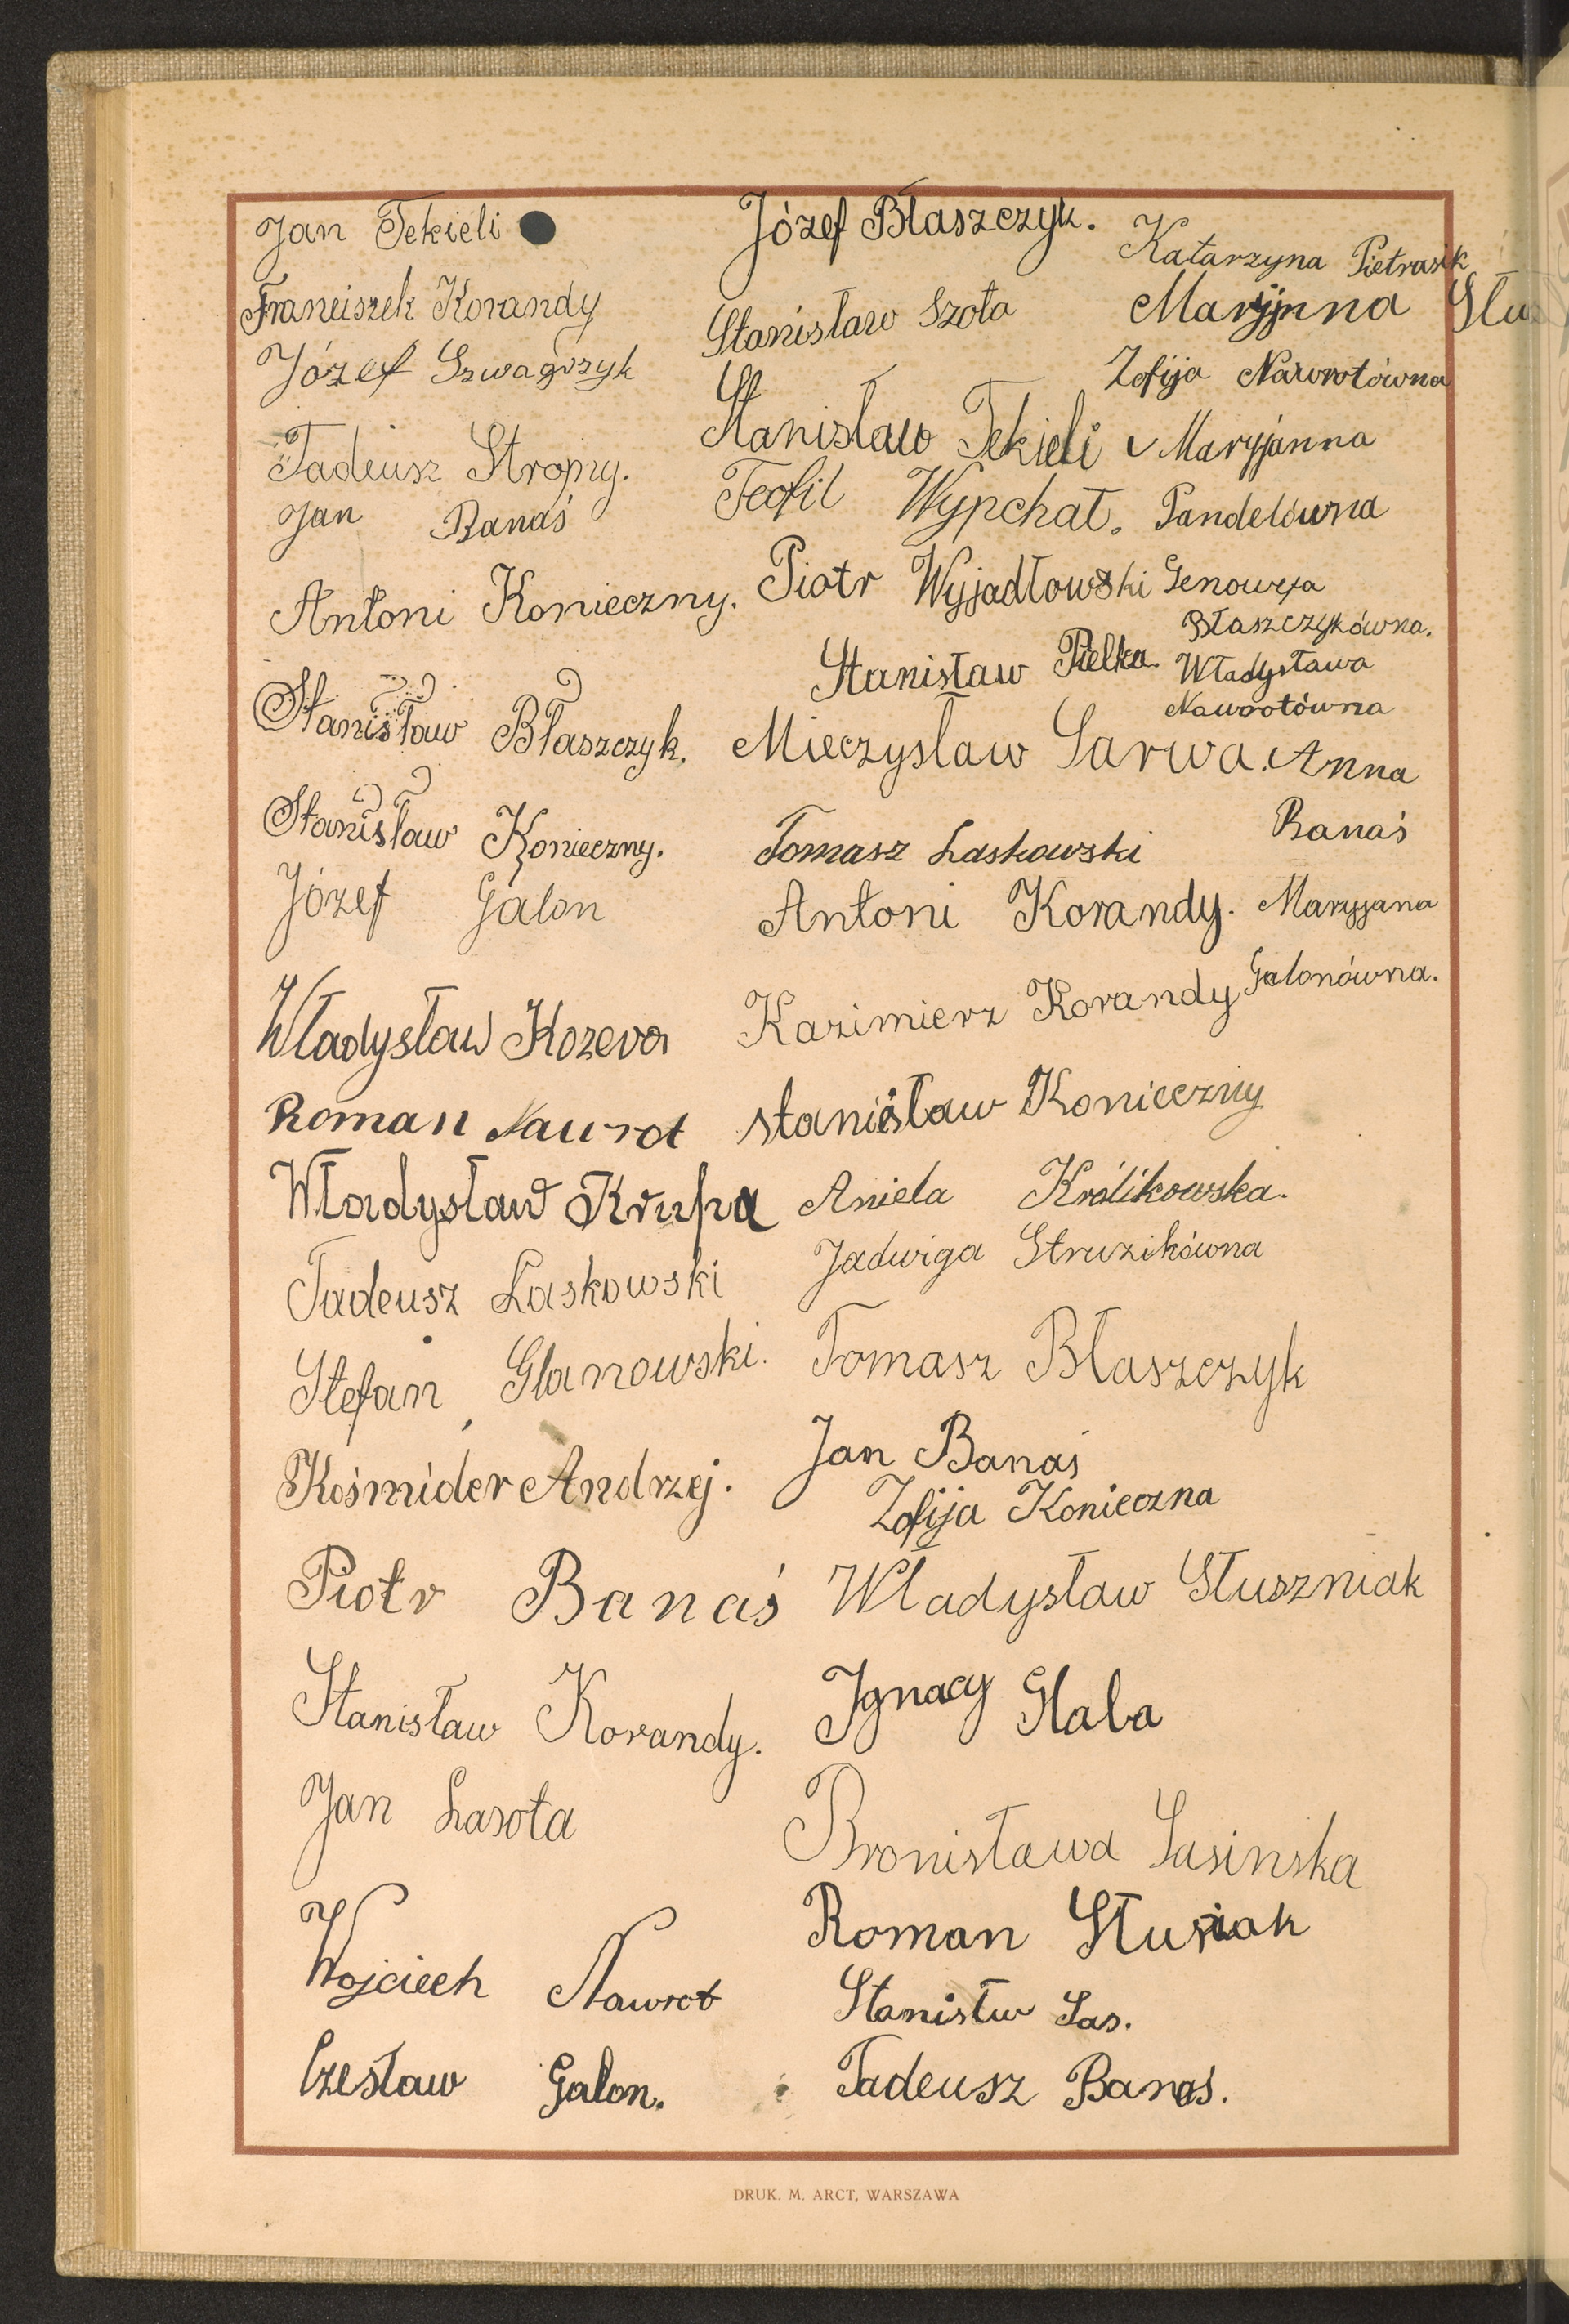 Jan Tekieli
Franciszek Korandy
Józef Szwagrzyk
Tadeusz Stropny.
Jan Banaś
Antoni Konieczny.
Stanisław Błaszczyk.
Stanisław Konieczny.
Józef Galon
Władysław Kozera
Roman Nawrot
Władysław Krupa
Tadeusz Laskowski
Stefan Glanowski.
Kośmider Andrzej.
Piotr Banaś
Stanisław Korandy.
Jan Lasota
Wojciech Nawrot
Czesław Galon.
Józef Błaszczyk.
Stanisław Szota
Stanisław Tekieli
Teofil Wypchał.
Piotr Wyjadłowski
Stanisław Pielka.
Mieczysław Sarwa.
Tomasz Laskowski
Antoni Korandy.
Kazimierz Korandy
stanisław Konieczny
Aniela Królikowska.
Jadwiga Struzikówna
Tomasz Błaszczyk
Jan Banaś
Zofija Konieczna
Władysław Słuszniak
Ignacy Hala
Bronisława Sasinska
Roman Słusiak
Stanistw Sas.
Tadeusz Banaś.
Katarzyna Pietrasik
Maryjnna
Zofija Nawrotówna
Maryjanna
Pandelówna
Genowefa
Błaszczykówna.
Władysława
Nawrotówna
Anna
Banaś
Maryjana
Galonówna.
DRUK. M. ARCT, WARSZAWA